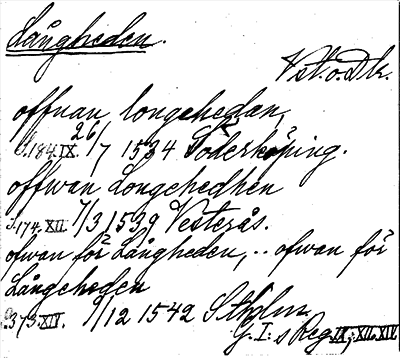 Långheden.
Vst. o. Dlr.
offuan longehedan,
S. 184. IX. 26/7 1534 Söderköping.
offwan Longehedhen
S. 174. XII. 7/3 1539 Vesterås.
ofwan för Långheden, .. ofwan för
Långeheden
S. 373. XIV. 9/12 1542 Sthlm.
G. I: s Reg. IX; XII, XIV